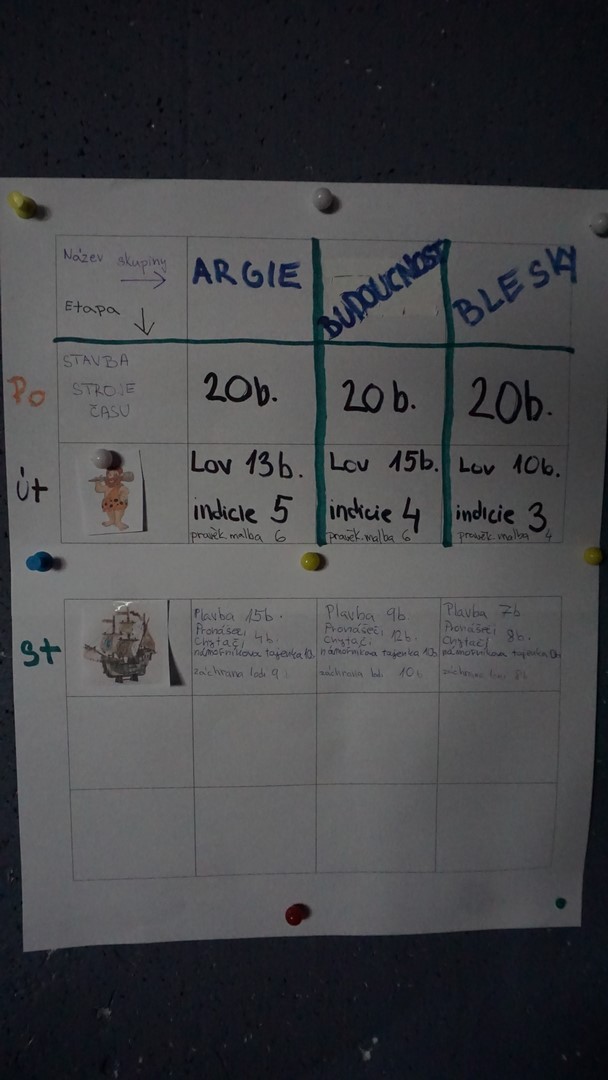 Název skupiny
Etapa
ARGIE
BUDOUCNOST
BLESKY
Po
STAVBA
STROJE
ČASU
20b.
20b.
20b.
Út
Lov 13b.
indicie 5
pravěk. malba 6
Lov 15b.
indicie 4
pravěk. malba 6
Lov 10b.
indicie 3
pravěk. malba 4
St
Plavba 15b.
Pronášeči
Chytači 4b.
námořníkova tajenka
záchrana lodi 9
Plavba 9b.
Pronášeči
Chytači 12b.
námořníkova tajenka
záchrana lodi 10
Plavba 7b
Pronášeči
Chytači 8b.
námořníkova tajenka
záchrana